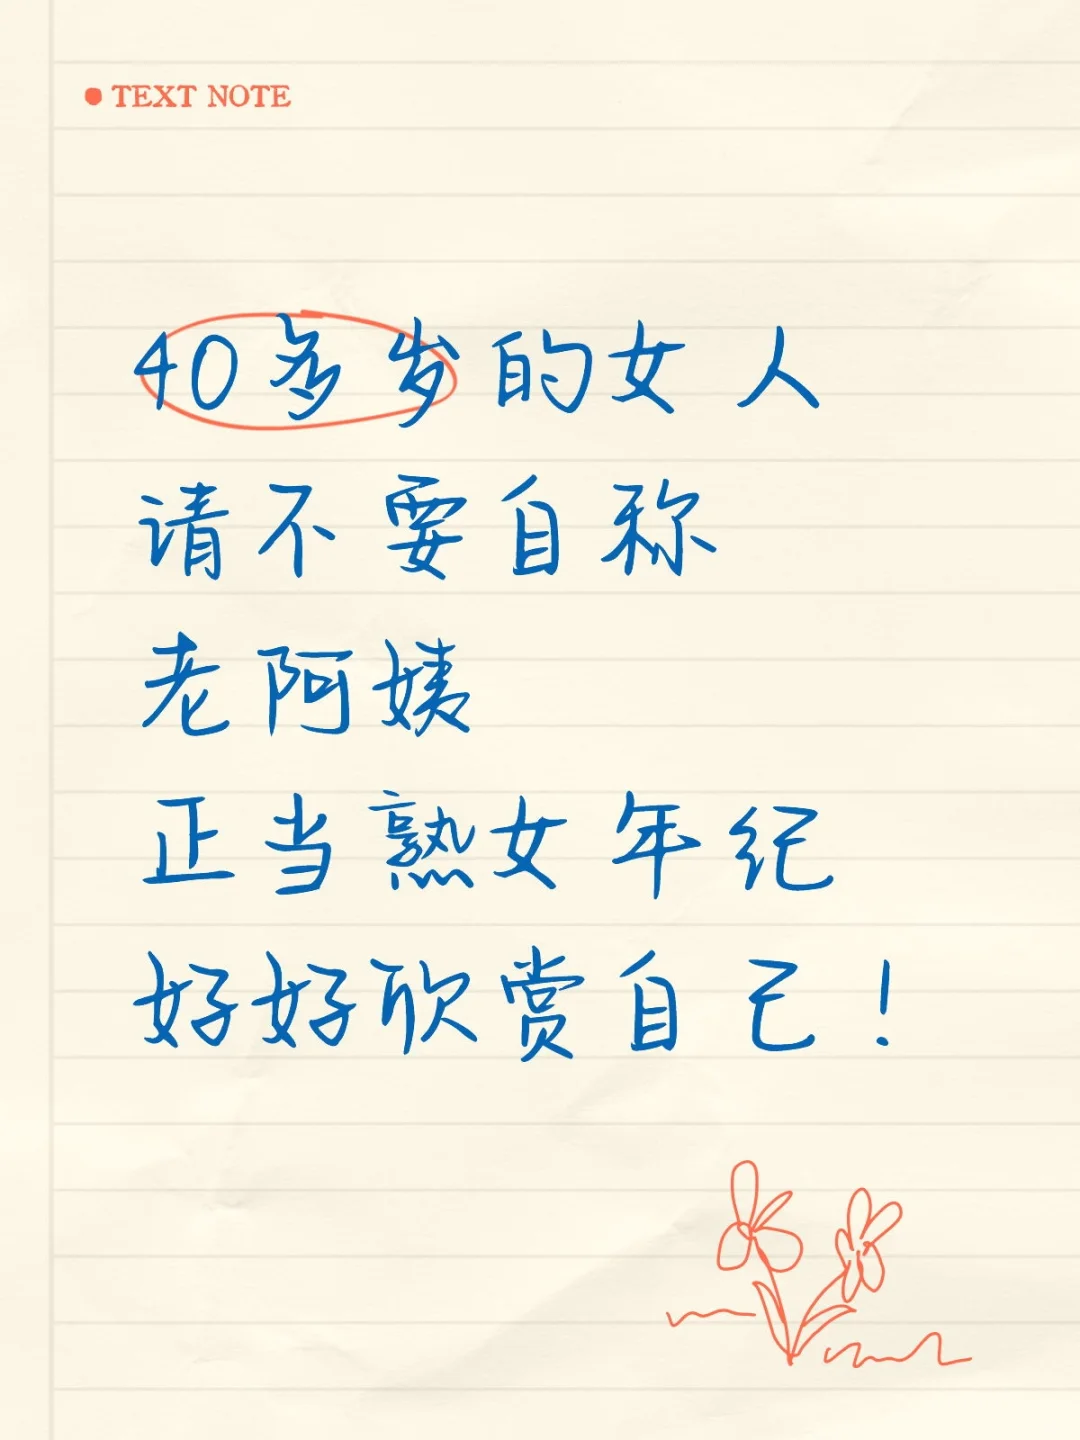 TEXT NOTE
40多岁的女人
请不要自称
老阿姨
正当熟女年纪
好好欣赏自己！